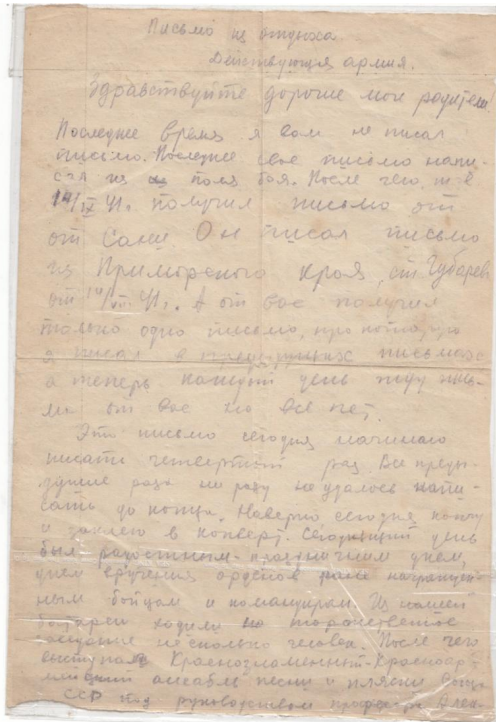 Письмо из отдыха.
Действующая армия.
Здравствуйте дорогие мои родители!
Последнее время я вам не писал
письмо. Последнее свое письмо напи-
сал из поля боя. После чего
14/IX 41 г. получил письмо от
от Сани. Он писал письмо
из Приморского края, ст. Губарев
от 10/VIII 41 г. А от вас получил
только одно письмо, про которую
я писал в предыдущих письмах
а теперь каждый день жду пись-
ма от вас но все нет.
Это письмо сегодня начинаю
писать четвертый раз. Все преды-
дущие раза ни разу не удалось напи-
сать до конца. Наверно сегодня кончу
и заклею в конверт. Сегодняшний день
был радостным праздничным днем,
днем вручения орденов ранее награжден-
ным бойцам и командирам. Из нашей
батареи ходили на торжественное
заседание несколько человек. После чего
выступал Краснознаменный Красноар-
мейский ансамбль песни и пляски
ССР под руководством профессора Алек-